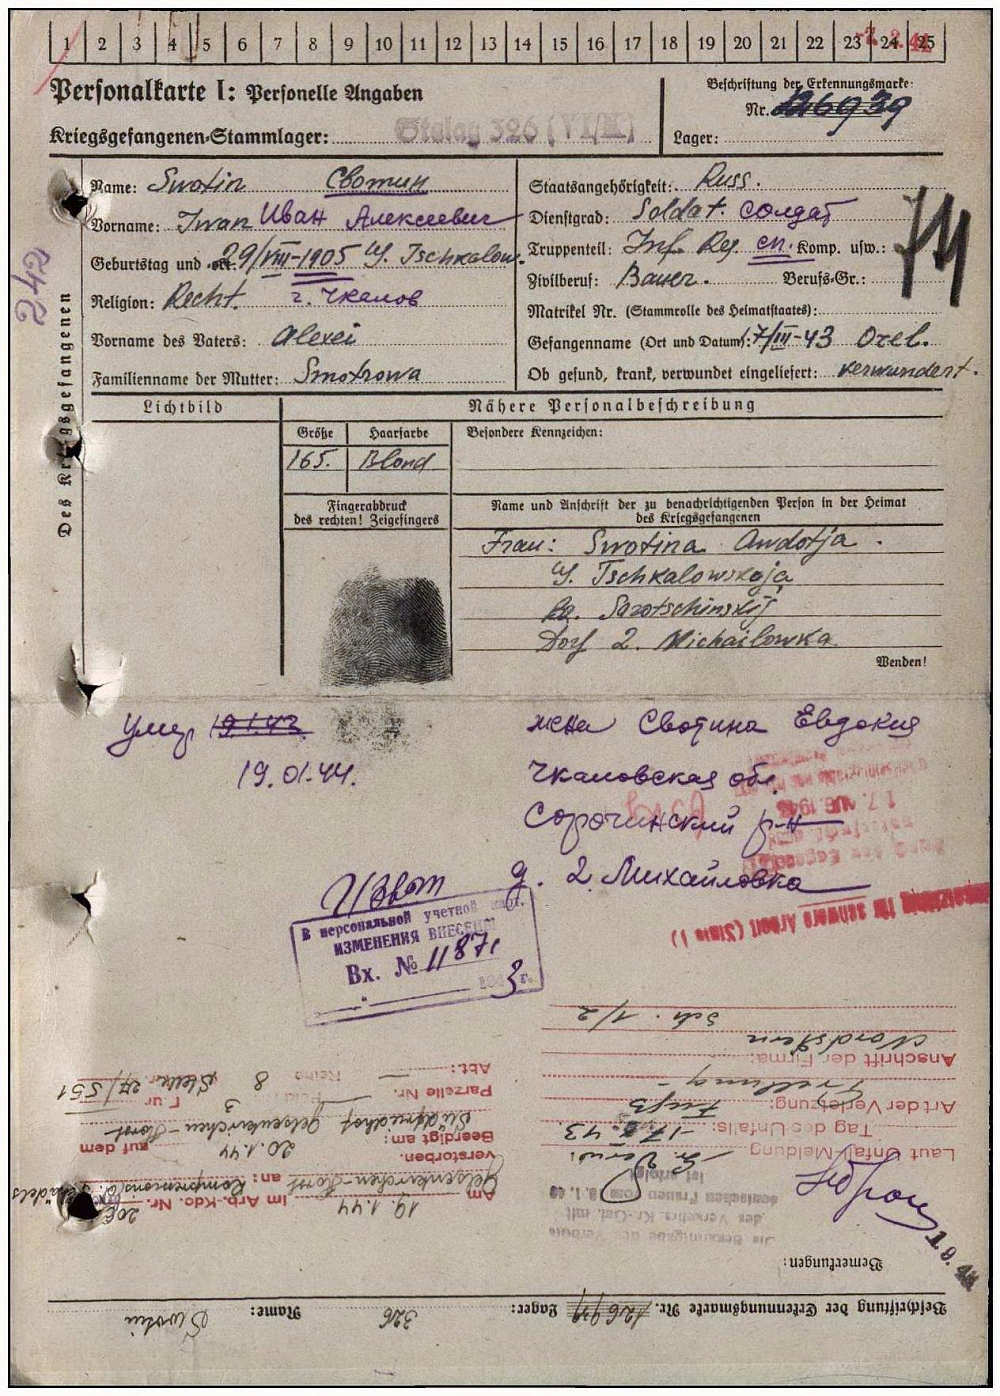 1 2 3 4 5 6 7 8 9 10 11 12 13 14 15 16 17 18 19 20 21 22 23 24 25
Personalkarte I: Personelle Angaben
Kriegsgefangenen-Stammlager: Stalag 326 (VI/K)
Beschriftung der Erkennungsmarke:
Nr. 126939
Lager:
Des Kriegsgefangenen
242
Name: Swotin Свотин
Vorname: Iwan Иван Алексеевич
Geburtstag und 29/VIII-1905 Tschkalow.
Religion: Recht. г. Чкалов
Vorname des Vaters: Alexei
Familienname der Mutter: Smotrowa
Staatsangehörigkeit: Russ.
Dienstgrad: Soldat. солдат
Truppenteil: Inf. Reg. сп. Komp. usw.:
Zivilberuf: Bauer. Berufs-Gr.:
Matrikel Nr. (Stammrolle des Heimatstaates):
Gefangenname (Ort und Datum): 17/III-43 Orel.
Ob gesund, krank, verwundet eingeliefert: verwundert.
74
Lichtbild
Nähere Personalbeschreibung
Größe Haarfarbe
165. Blond
Besondere Kennzeichen:
Fingerabdruck
des rechten! Zeigefingers
Name und Anschrift der zu benachrichtigenden Person in der Heimat
des Kriegsgefangenen
Frau: Swotina Awdotja.
Tschkalowskaja
Ra. Sarotschinskij
Dorf 2. Michailowka
Wenden!
умер 19.1.43.
19.01.44.
жена Свотина Евдокия
Чкаловская обл.
Сорочинский р-н
д. 2 Михайловка
В персональной учетной карт.
ИЗМЕНЕНИЯ ВНЕСЕНЫ
Вх. № 11871
1943 г.
schwere Arbeit (Stufe 1)
Sch. 1/2
Nordstern
Anschrift der Firma:
Art der Verletzung: Fuß
Tag des Unfalls: -17.8.43
Laut Unfall-Meldung
Abt.: — Reihe 8 Stelle 27/551
Parzelle Nr. — Feld 3 Flur
Südfriedhof Gelsenkirchen-Horst
Beerdigt am: 20.1.44 auf dem
verstorben.
Gelsenkirchen-Horst an: Kompression d. Schädels
Am 19.1.44 im Arb-Kdo. Nr. 206
des Verkehrs Kr.-Gef. mit
deutschen Frauen
ist erfolgt
Bemerkungen:
Beschriftung der Erkennungsmarke Nr. 126939 Lager: 326 Name: Swotin